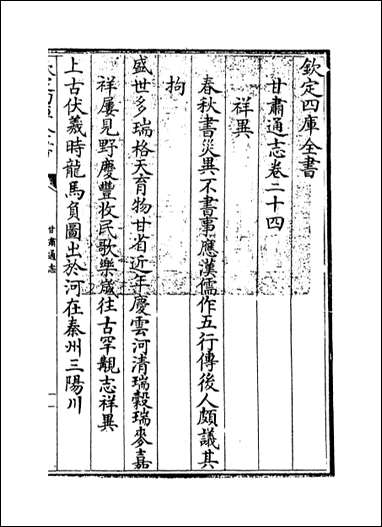 欽定四庫全書
甘肅通志卷二十四
祥異
春秋書災異不書事應漢儒作五行傳後人頗議其
拘
盛世多瑞格天育物甘省近年慶雲河清瑞穀瑞麥嘉
祥屢見野慶豐收民歌樂歲往古罕覯志祥異
上古伏羲時龍馬負圖出於河在秦州三陽川
甘肅通志